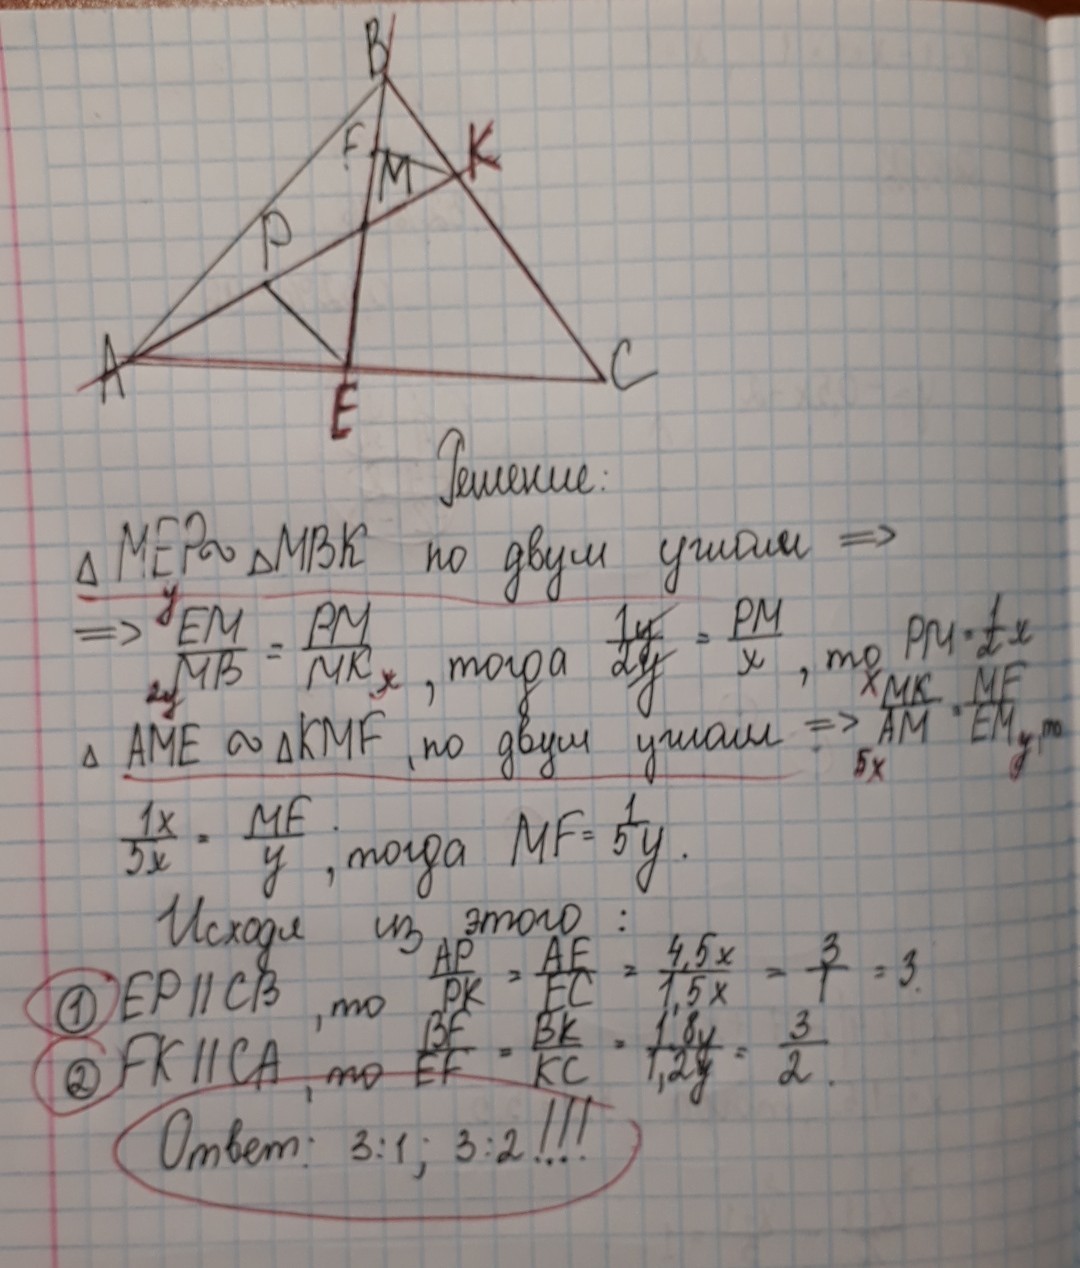 B
F
M
K
P
A
E
C
Решение:
△ MEP ~ △MBK по двум углам =>
=> y EM / 2y MB = PM / MK x, тогда 1y/2y = PM/x, то PM = 1/2 x
△ AME ~ △KMF, по двум углам => x MK / 5x AM = MF / EM y, то
1x/5x = MF/y, тогда MF = 1/5 y.
Исходя из этого:
① EP || CB, то AP/PK = AE/EC = 4,5x/1,5x = 3/1 = 3.
② FK || CA, то BF/EF = BK/KC = 1,8y/1,2y = 3/2.
Ответ: 3:1; 3:2!!!